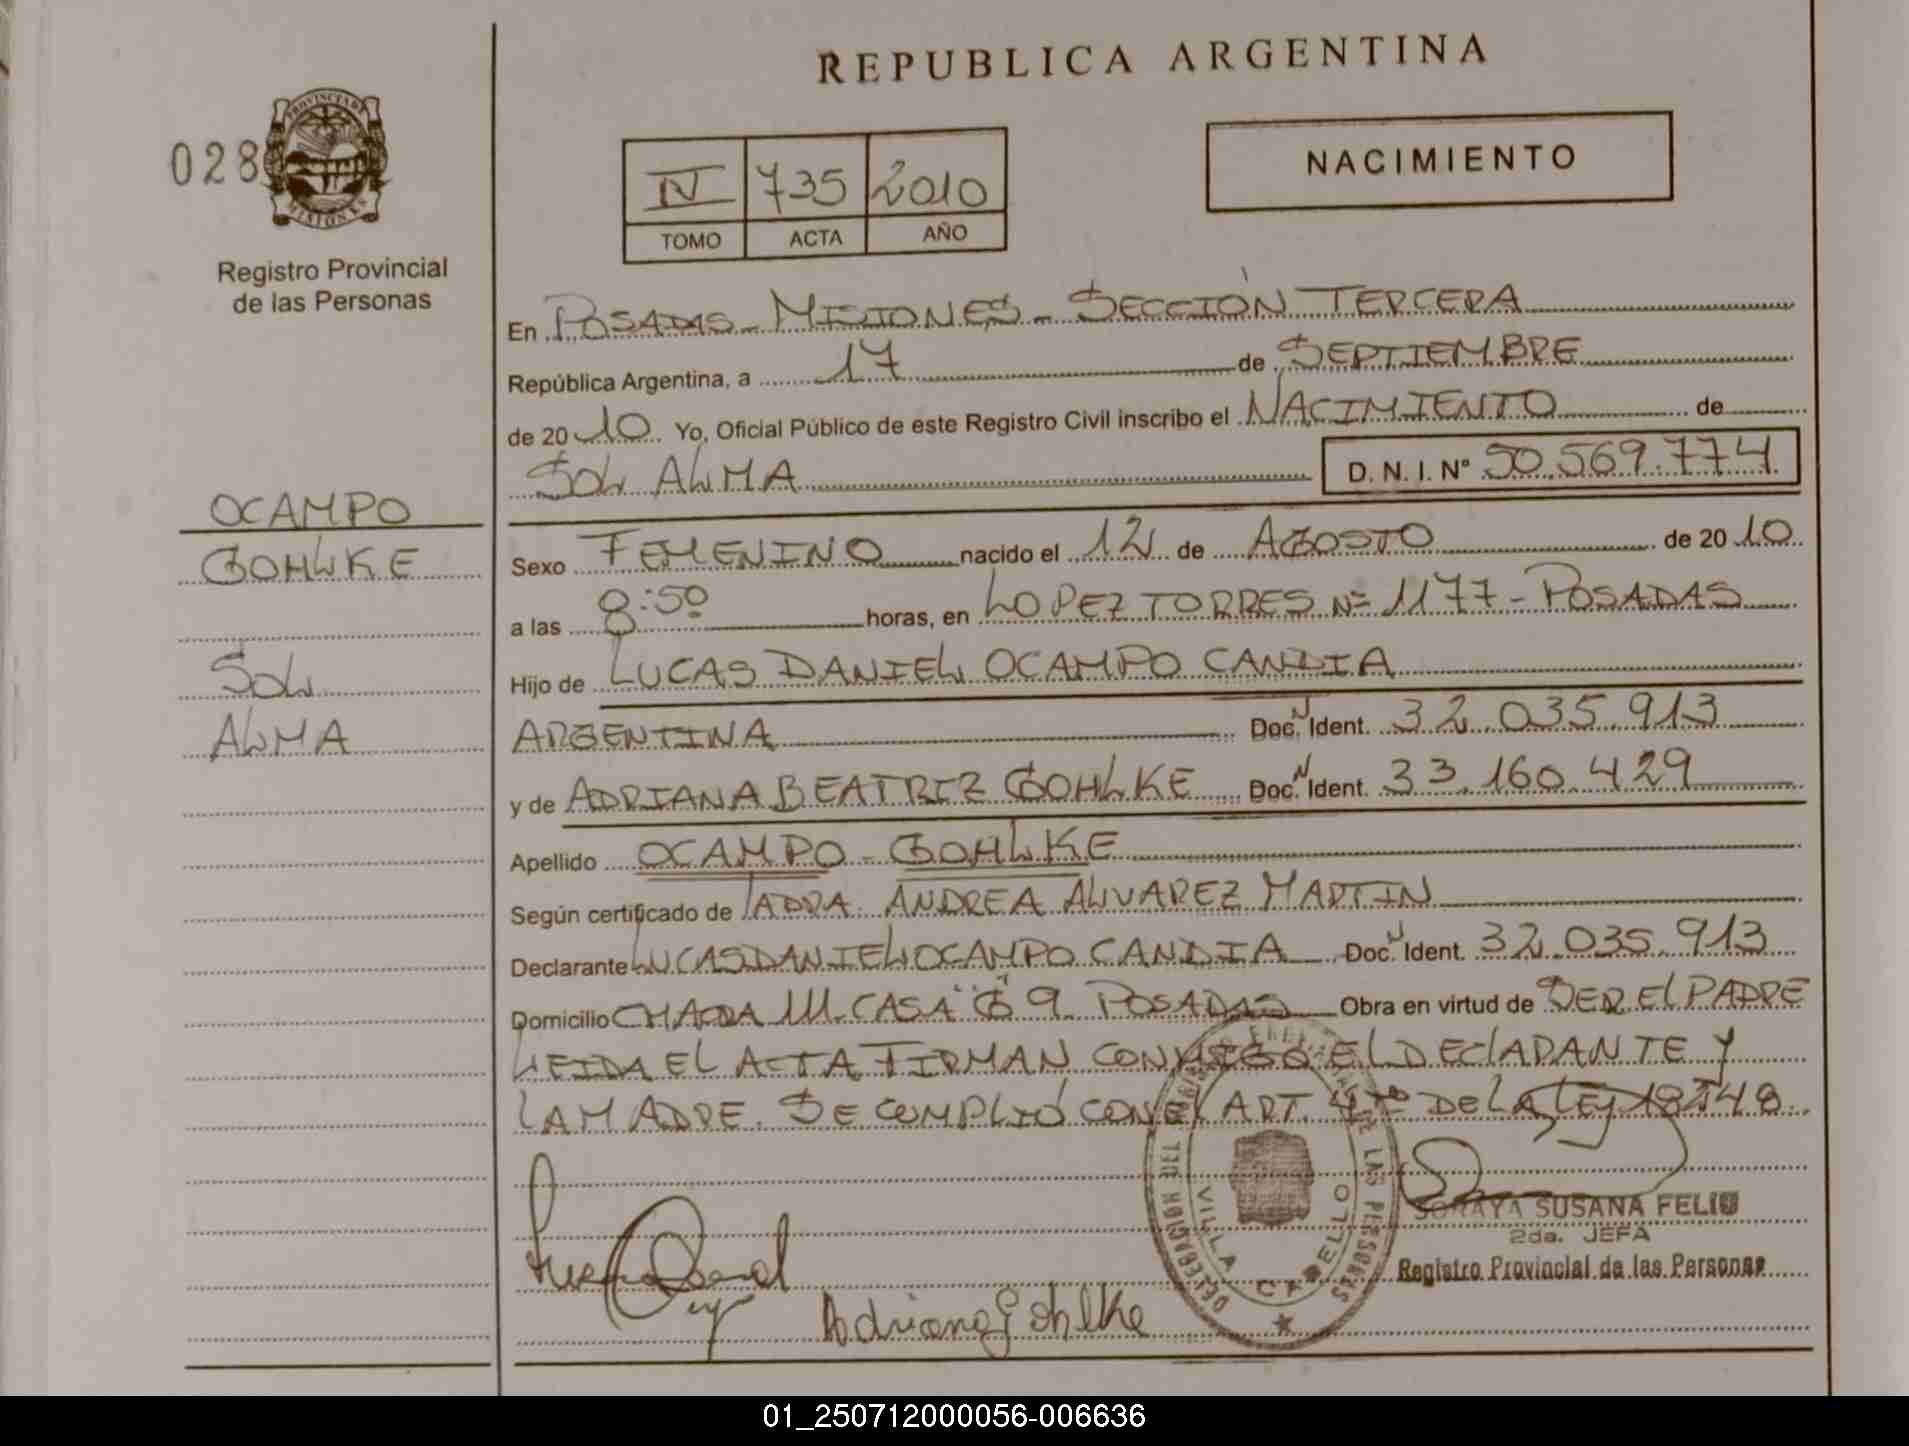 REPUBLICA ARGENTINA
028
PROVINCIA DE
MISIONES
Registro Provincial
de las Personas
IV 735 2010
TOMO ACTA AÑO
NACIMIENTO
En POSADAS - MISIONES - SECCIÓN TERCERA
República Argentina, a 17 de SEPTIEMBRE
de 2010 Yo, Oficial Público de este Registro Civil inscribo el NACIMIENTO de
SOL ALMA D.N.I. Nº 50.569.774
OCAMPO
GOHLKE
SOL
ALMA
Sexo FEMENINO nacido el 12 de AGOSTO de 2010
a las 8:50 horas, en LOPEZ TORRES Nº 1177 - POSADAS
Hijo de LUCAS DANIEL OCAMPO CANDIA
ARGENTINA Doc. N Ident. 32.035.913
y de ADRIANA BEATRIZ GOHLKE Doc. N Ident. 33.160.429
Apellido OCAMPO - GOHLKE
Según certificado de LA DRA. ANDREA ALVAREZ MARTIN
Declarante LUCAS DANIEL OCAMPO CANDIA Doc. N Ident. 32.035.913
Domicilio CHACRA 111 CASA "G" 9 POSADAS Obra en virtud de SER EL PADRE
LEIDA EL ACTA FIRMAN CONMIGO EL DECLARANTE Y
LA MADRE. SE CUMPLIÓ CON EL ART. DE LA LEY 18248.
DELEGACION DEL DE LAS PERSONAS
VILLA CABELLO
SORAYA SUSANA FELIU
2da. JEFA
Registro Provincial de las Personas
Adriana Gohlke
01_250712000056-006636